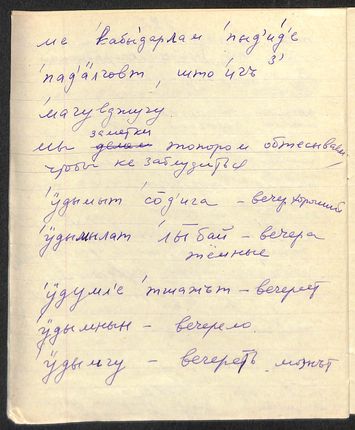 ме кабыдарлам 'пыд'ид'е
'пад'äлговт, што 'ичъ
'мачувджугу.
мы заметки топором обтесываем,
чтобы не заблудиться
'ÿдымыт 'сōд'ига – вечер хороший
'ÿдымылат 'лы̄бай – вечера
тёмные
'ÿдумл'е 'тшажът – вечереет
ÿдымнын – вечерело.
'ÿдымгу – вечереть может